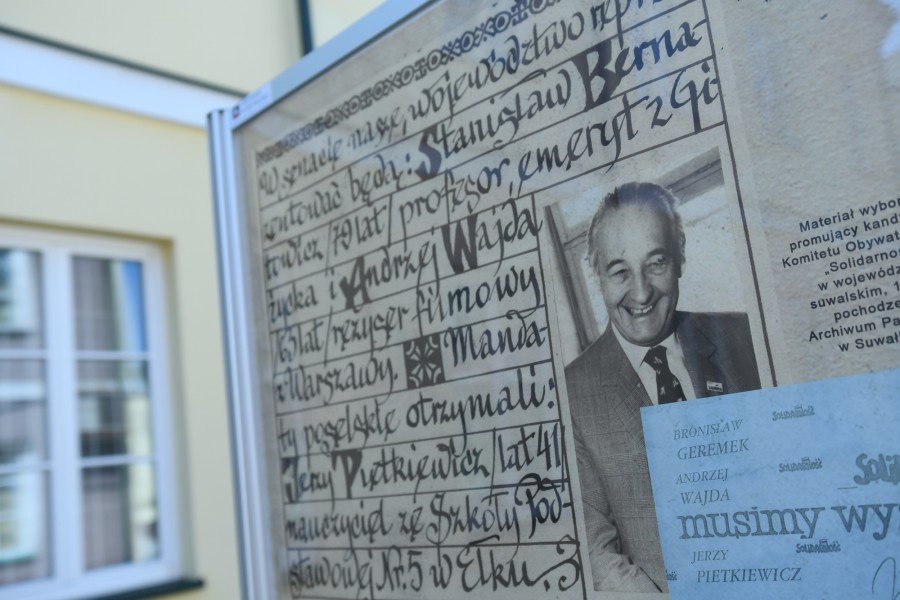 W senacie naszę, województwo repre-
zentować będą: Stanisław Berna-
towicz /79 lat/ profesor, emeryt z Gi-
życka i Andrzej Wajda
/63 lat/ reżyser filmowy
z Warszawy. Manda-
ty poselskie otrzymali:
Jerzy Pietkiewicz /lat 41/
nauczyciel ze Szkoły Pod-
stawowej Nr. 5 w Ełku.
Materiał wybor
promujący kand
Komitetu Obywat
„Solidarno
w wojewódz
suwalskim, 1
pochodze
Archiwum Pa
w Suwał
BRONISŁAW
GEREMEK
Solidarność
ANDRZEJ
WAJDA
Solidarność
Soli
musimy wy
JERZY
PIETKIEWICZ
Solidarność